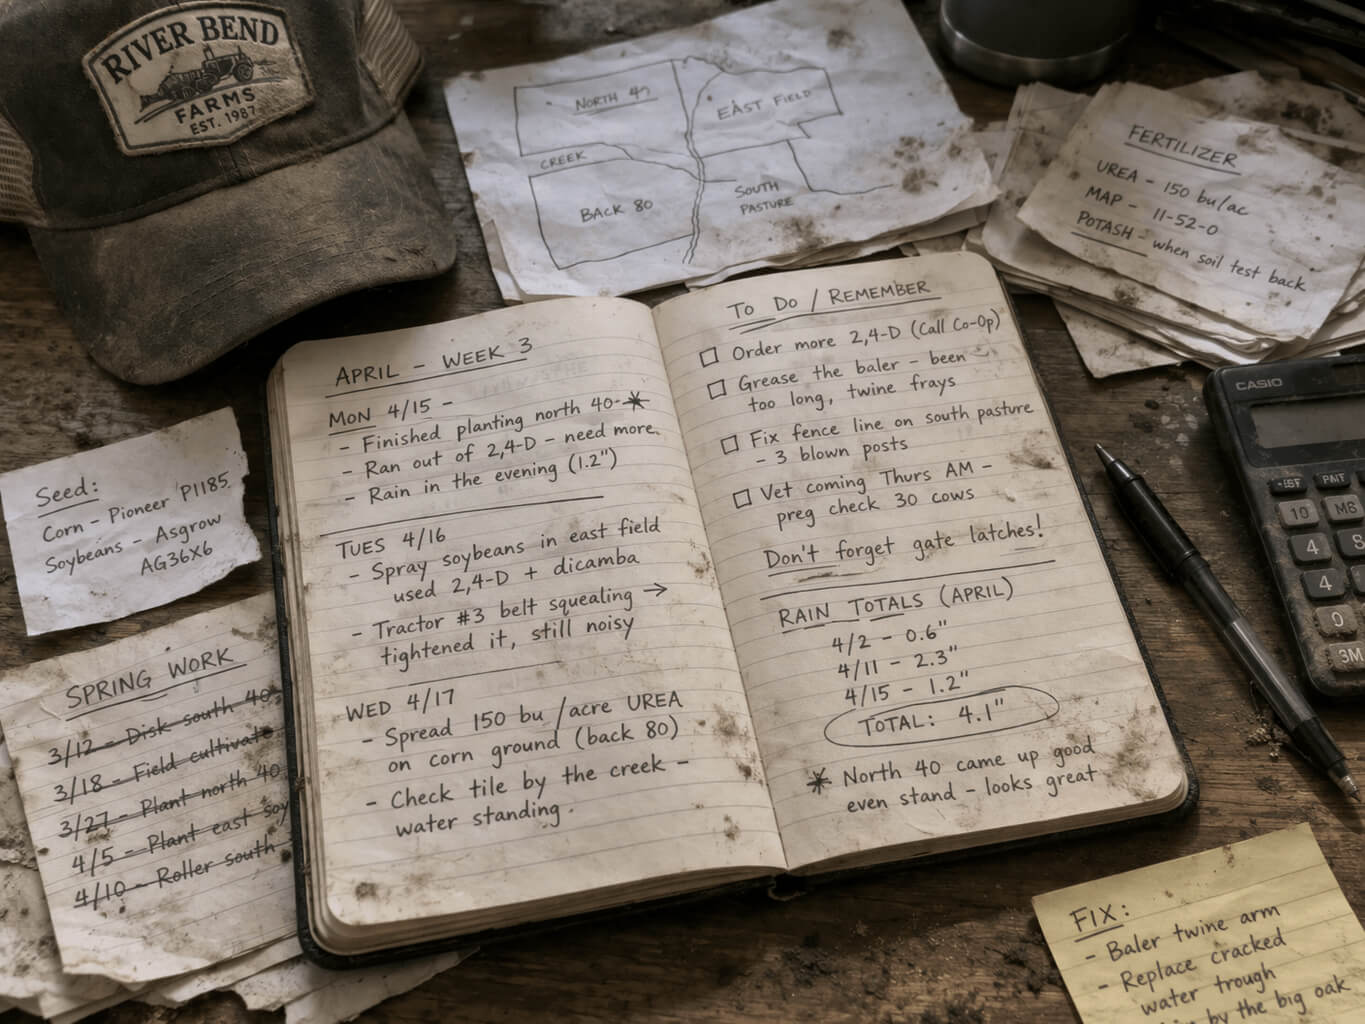 RIVER BEND
FARMS
EST. 1987
NORTH 40
EAST FIELD
CREEK
BACK 80
SOUTH
PASTURE
FERTILIZER
UREA - 150 bu/ac
MAP - 11-52-0
POTASH - when soil test back
Seed:
Corn - Pioneer P1185
Soybeans - Asgrow
AG36X6
SPRING WORK
3/12 - Disk south 40
3/18 - Field cultivate
3/27 - Plant north 40
4/5 - Plant east soy
4/10 - Roller south
APRIL - WEEK 3
MON 4/15 -
- Finished planting north 40-*
- Ran out of 2,4-D - need more.
- Rain in the evening (1.2")
TUES 4/16
- Spray soybeans in east field
used 2,4-D + dicamba
- Tractor #3 belt squealing →
tightened it, still noisy
WED 4/17
- Spread 150 bu/acre UREA
on corn ground (back 80)
- Check tile by the creek -
water standing.
TO DO / REMEMBER
☐ Order more 2,4-D (Call Co-Op)
☐ Grease the baler - been
too long, twine frays
☐ Fix fence line on south pasture
- 3 blown posts
☐ Vet coming Thurs AM -
preg check 30 cows
Don't forget gate latches!
RAIN TOTALS (APRIL)
4/2 - 0.6"
4/11 - 2.3"
4/15 - 1.2"
TOTAL: 4.1"
* North 40 came up good
even stand - looks great
CASIO
PMT
10
4
4
0
3M
FIX:
- Baler twine arm
- Replace cracked
water trough
by the big oak